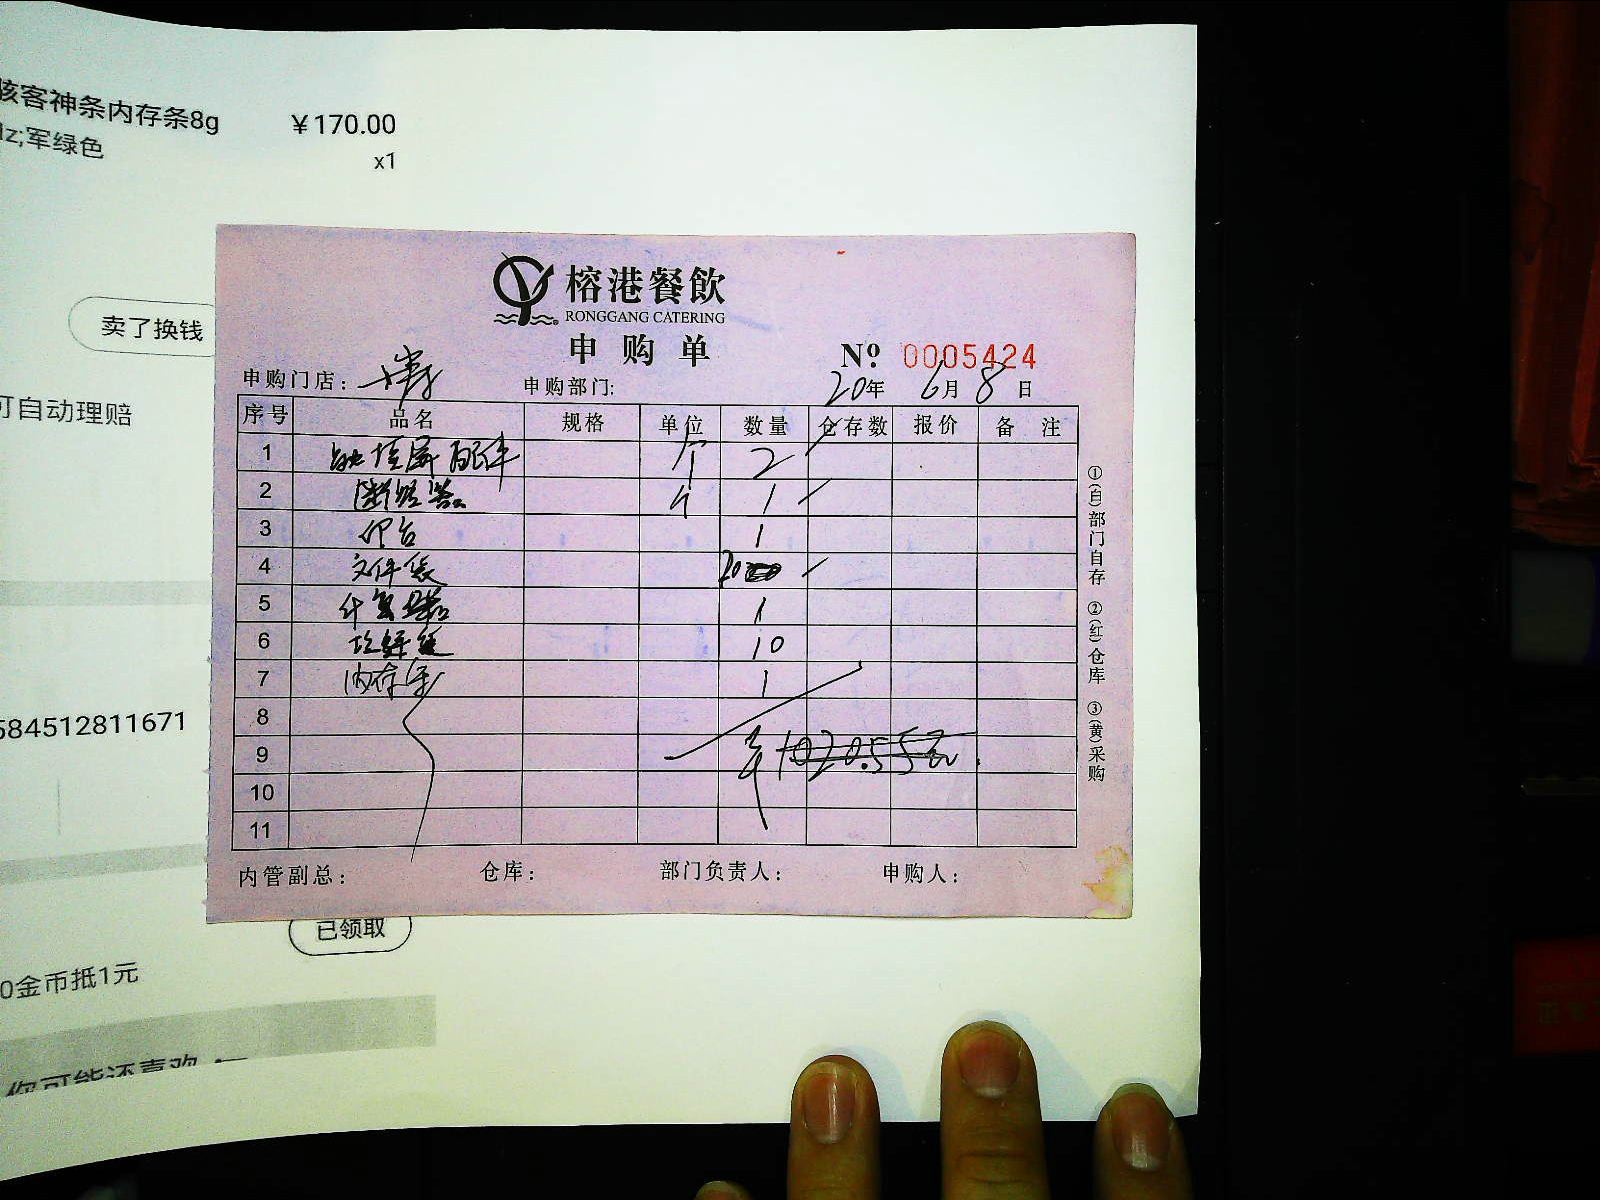 骇客神条内存条8g ￥170.00
Hz;军绿色 x1
卖了换钱
可自动理赔
584512811671
已领取
0金币抵1元
你可能还喜欢
榕港餐飲
RONGGANG CATERING
申购单
№ 0005424
申购门店: 申购部门: 20年 6月 8日
序号 品名 规格 单位 数量 仓存数 报价 备注
1 配件 个 2
2 断路器 个 1
3 印台 1
4 文件袋 20
5 计算器 1
6 10
7 内存条 1
8
9 1020.55元
10
11
内管副总: 仓库: 部门负责人: 申购人:
①(白)部门自存 ②(红)仓库 ③(黄)采购